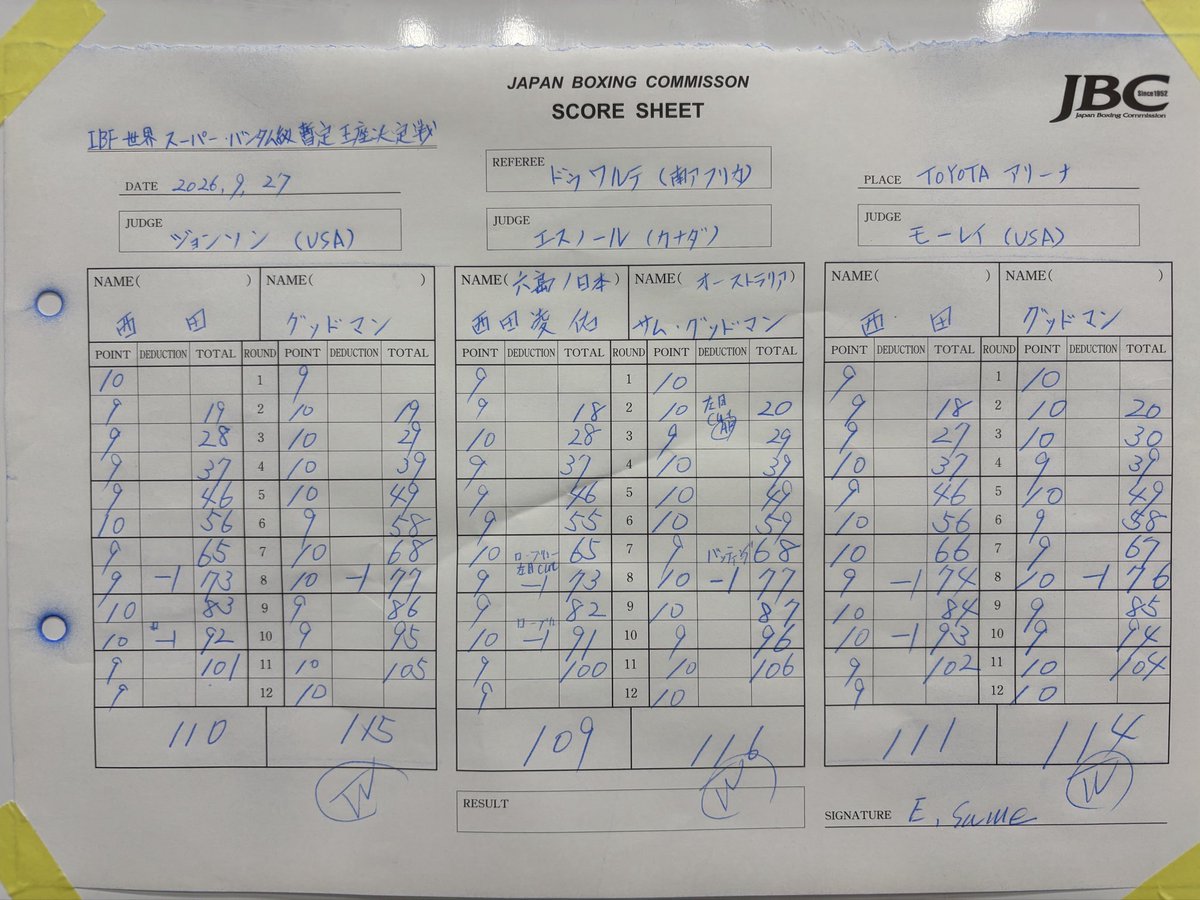 JAPAN BOXING COMMISSON
SCORE SHEET
JBC Since1952
Japan Boxing Commission
IBF世界スーパー・バンタム級暫定王座決定戦
DATE 2026, 9, 27
REFEREE ドン ワルテ (南アフリカ)
PLACE TOYOTA アリーナ
JUDGE ジョンソン (USA)
JUDGE エスノール (カナダ)
JUDGE モーレイ (USA)
NAME( ) NAME( ) NAME(六島/日本) NAME(オーストラリア) NAME( ) NAME( )
西田 グッドマン 西田凌佑 サム・グッドマン 西・田 グッドマン
POINT DEDUCTION TOTAL ROUND POINT DEDUCTION TOTAL POINT DEDUCTION TOTAL ROUND POINT DEDUCTION TOTAL POINT DEDUCTION TOTAL ROUND POINT DEDUCTION TOTAL
10 1 9 9 1 10 9 1 10
9 19 2 10 19 9 18 2 10 左目 20 9 18 2 10 20
9 28 3 10 29 10 28 3 9 29 9 27 3 10 30
9 37 4 10 39 9 37 4 10 39 10 37 4 9 39
9 46 5 10 49 9 46 5 10 49 9 46 5 10 49
10 56 6 9 58 9 55 6 10 59 10 56 6 9 58
9 65 7 10 68 10 65 7 9 68 10 66 7 9 67
ローブロー
左目cut
バッティング
9 -1 73 8 10 -1 77 9 -1 73 8 10 -1 77 9 -1 74 8 10 -1 76
10 83 9 9 86 9 82 9 10 87 10 84 9 9 85
10 -1 92 10 9 95 10 ローブロー -1 91 10 9 96 10 -1 93 10 9 94
9 101 11 10 105 9 100 11 10 106 9 102 11 10 104
9 12 10 9 12 10 9 12 10
110 115 109 116 111 114
W W W
RESULT
SIGNATURE E.